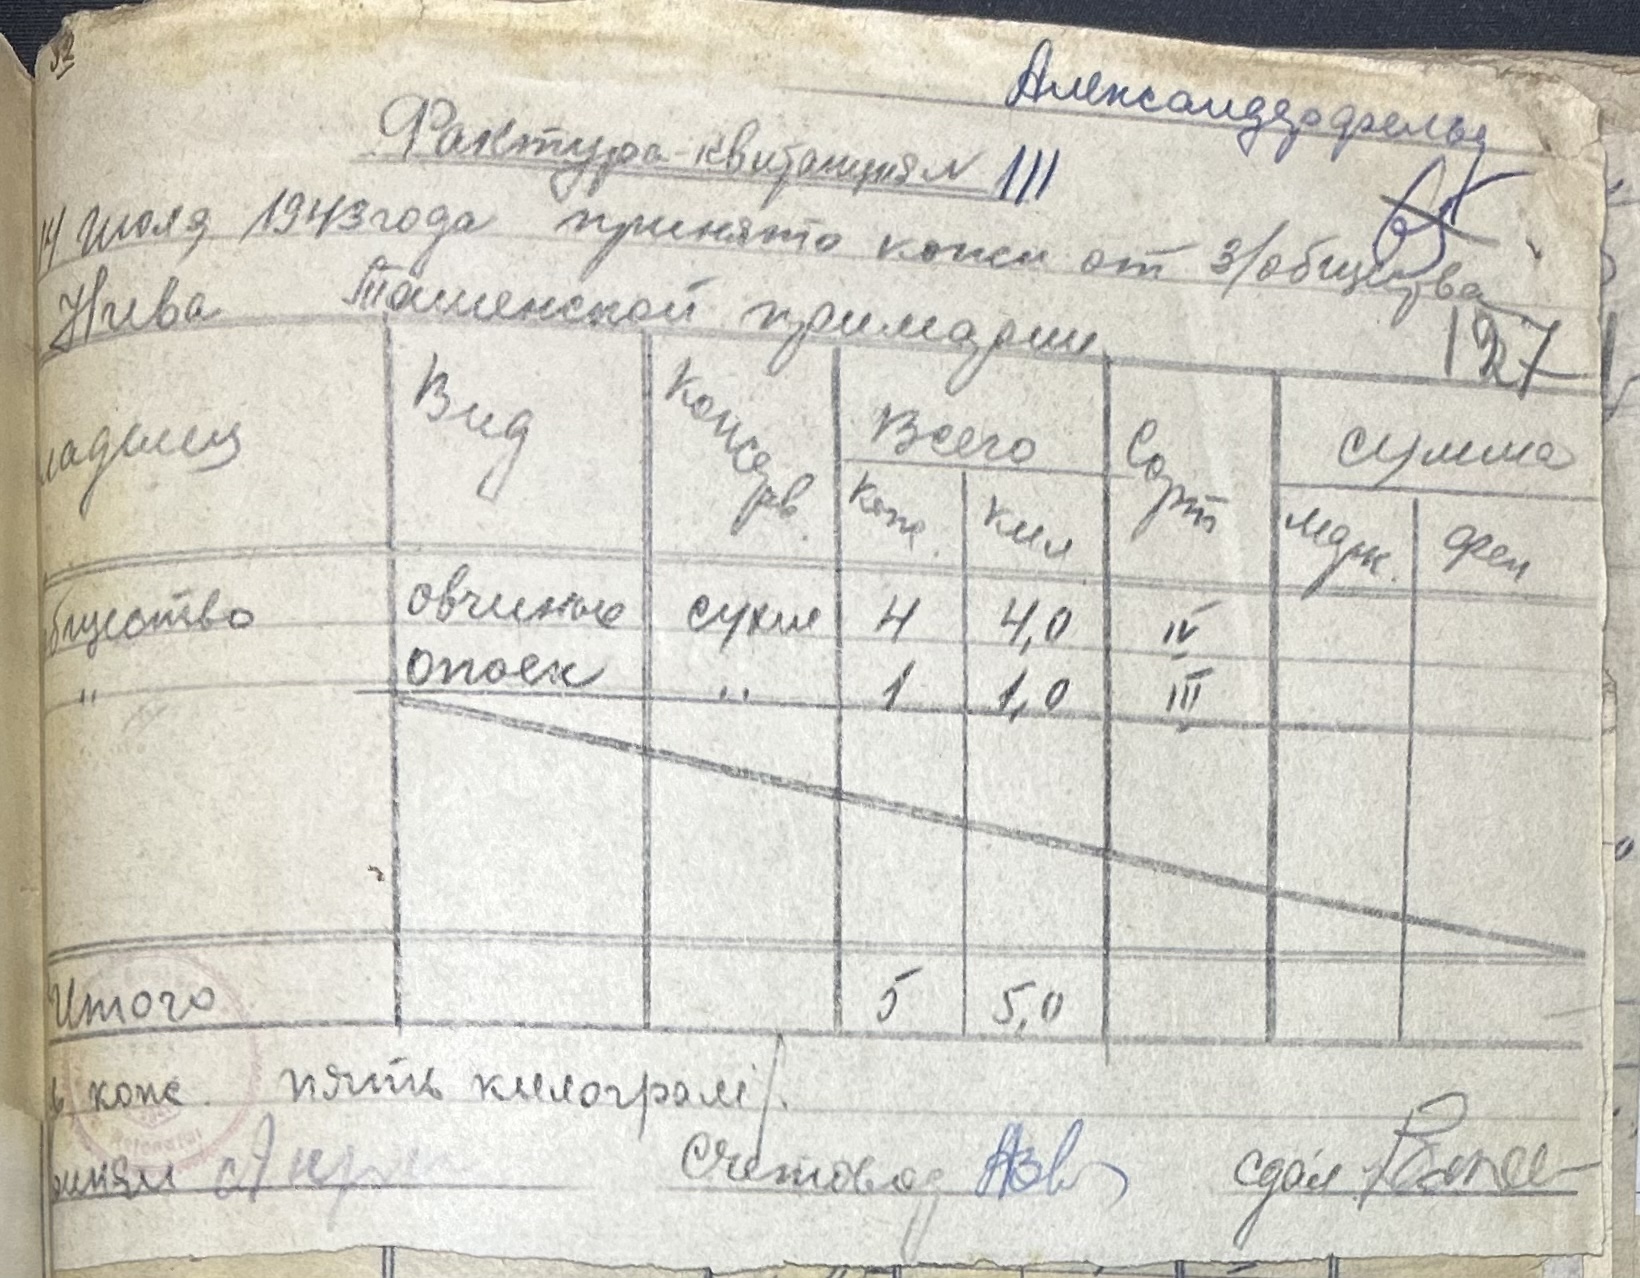 Александрофельд
Фактура-квитанция N 111
14 июля 1943 года принято кожи от з/общества
Нива Ташенской примарии
127
ладелец Вид Консерв. Всего Сорт Сумма
кож. кил марк. фен
бщество овчиные сухие 4 4,0 IV
" опоек " 1 1,0 III
Итого 5 5,0
ь кож. пять килограм/.
ринял Счетовод сдал